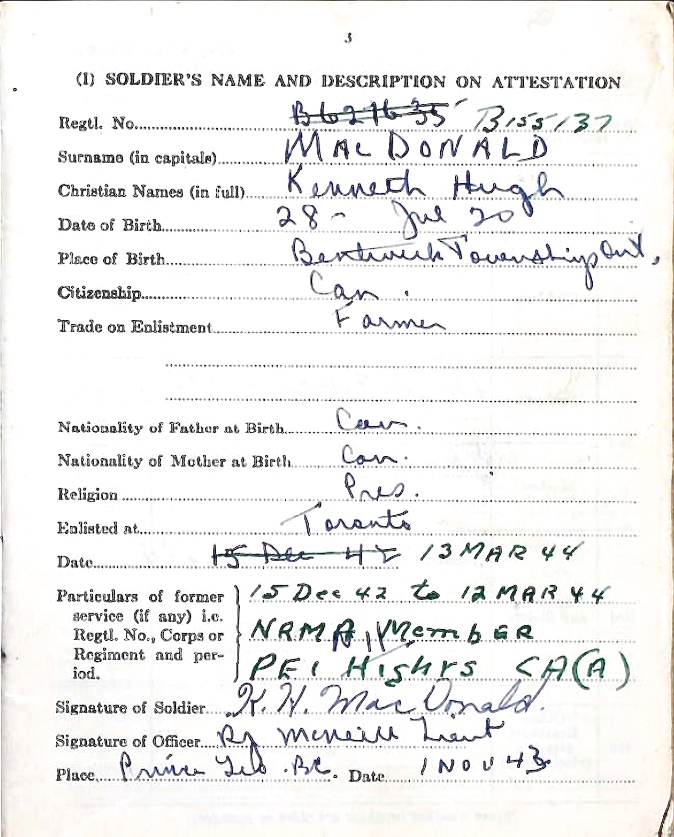 3
(1) SOLDIER'S NAME AND DESCRIPTION ON ATTESTATION
Regtl. No. B621635 B155137
Surname (in capitals) MACDONALD
Christian Names (in full) Kenneth Hugh
Date of Birth 28 - Jul 20
Place of Birth Township Ont.
Citizenship Can.
Trade on Enlistment Farmer
Nationality of Father at Birth Can.
Nationality of Mother at Birth Can.
Religion Pres.
Enlisted at Toronto
Date 15 Dec 42 13 MAR 44
Particulars of former 15 Dec 42 to 12 MAR 44
service (if any) i.c.
Regtl. No., Corps or NRMA Member
Regiment and per-
iod. PEI Highrs CA(A)
Signature of Soldier K. H. MacDonald.
Signature of Officer RJ McNeill Lieut
Place Prince Geo. B.C. Date 1 NOV 43